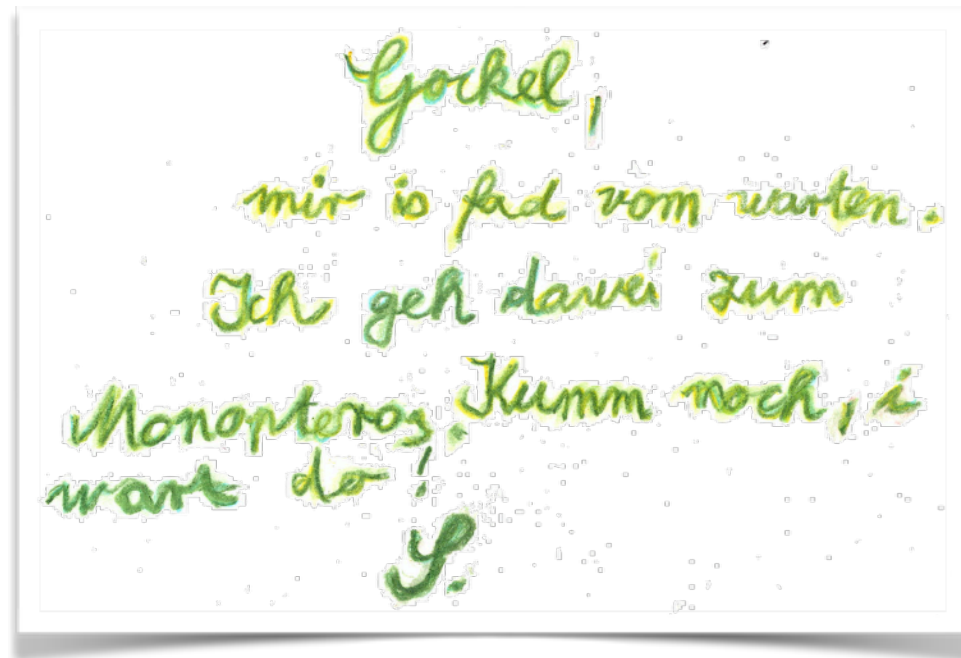 Gockel,
mir is fad vom warten.
Ich geh dawei zum
Monopteros. Kumm noch, i
wart do!
S.